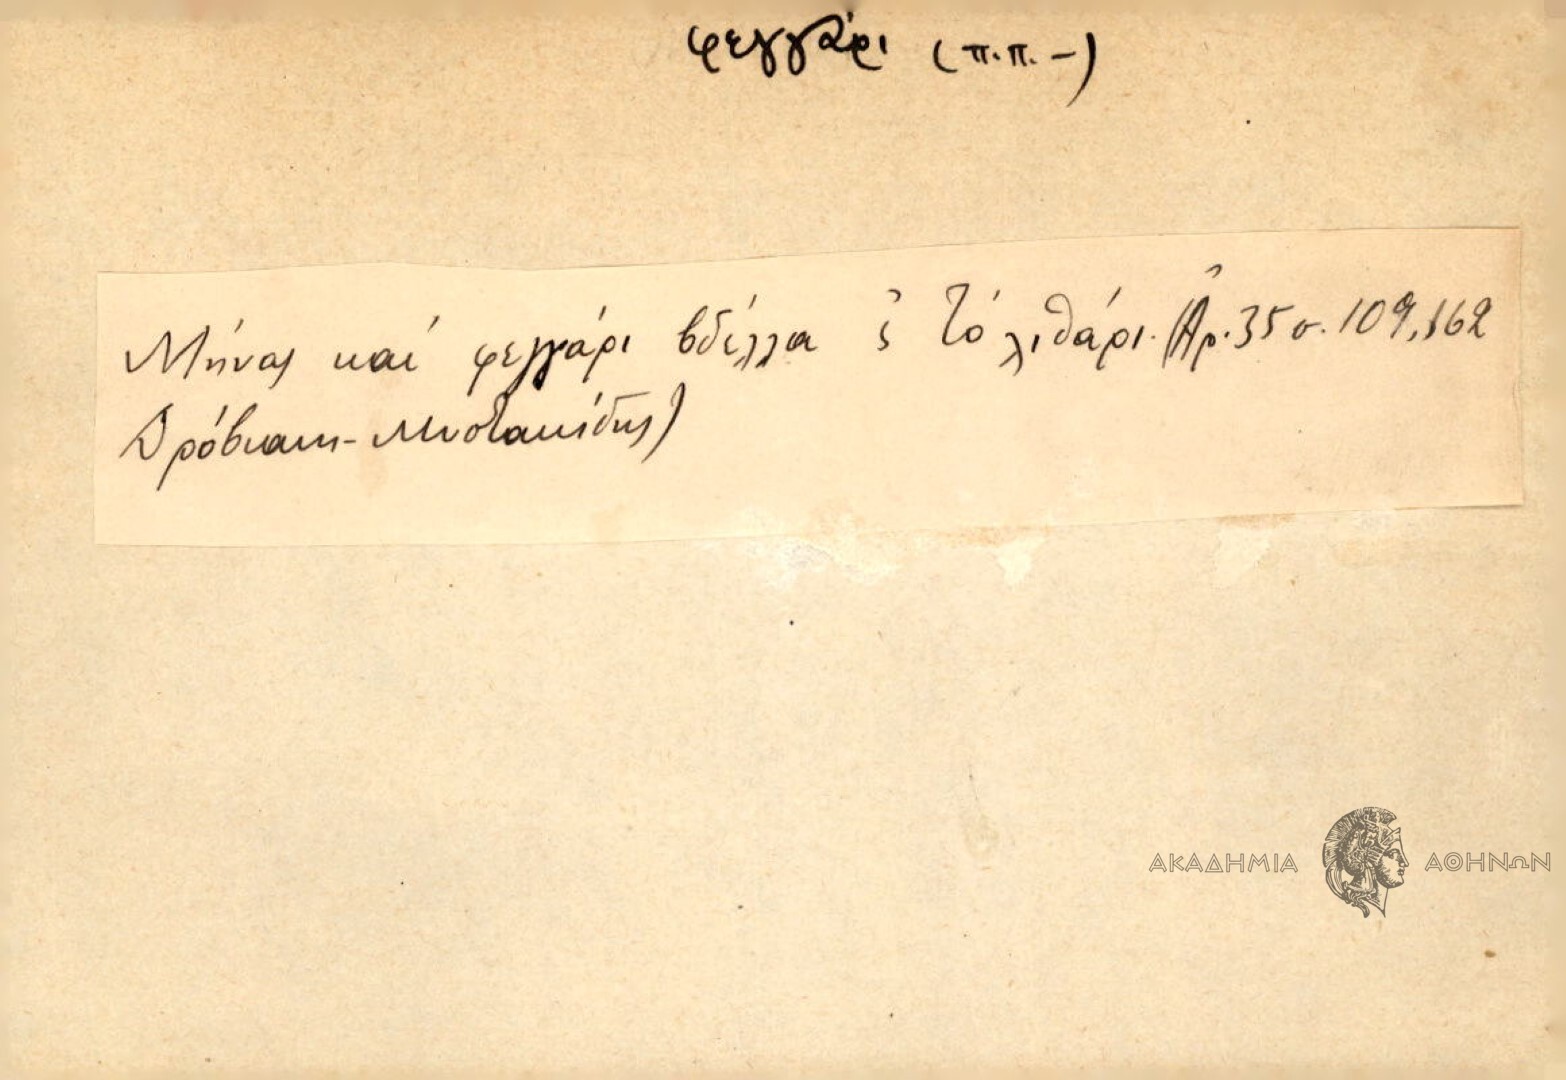 φεγγάρι (π.π. -)
Μήνας καί φεγγάρι βδέλλα ς̓ τό λιθάρι. (Ἀρ. 35 σ. 109, 162
Δρόβιανη-Μυστακίδης)
ΑΚΑΔΗΜΙΑ ΑΘΗΝΩΝ